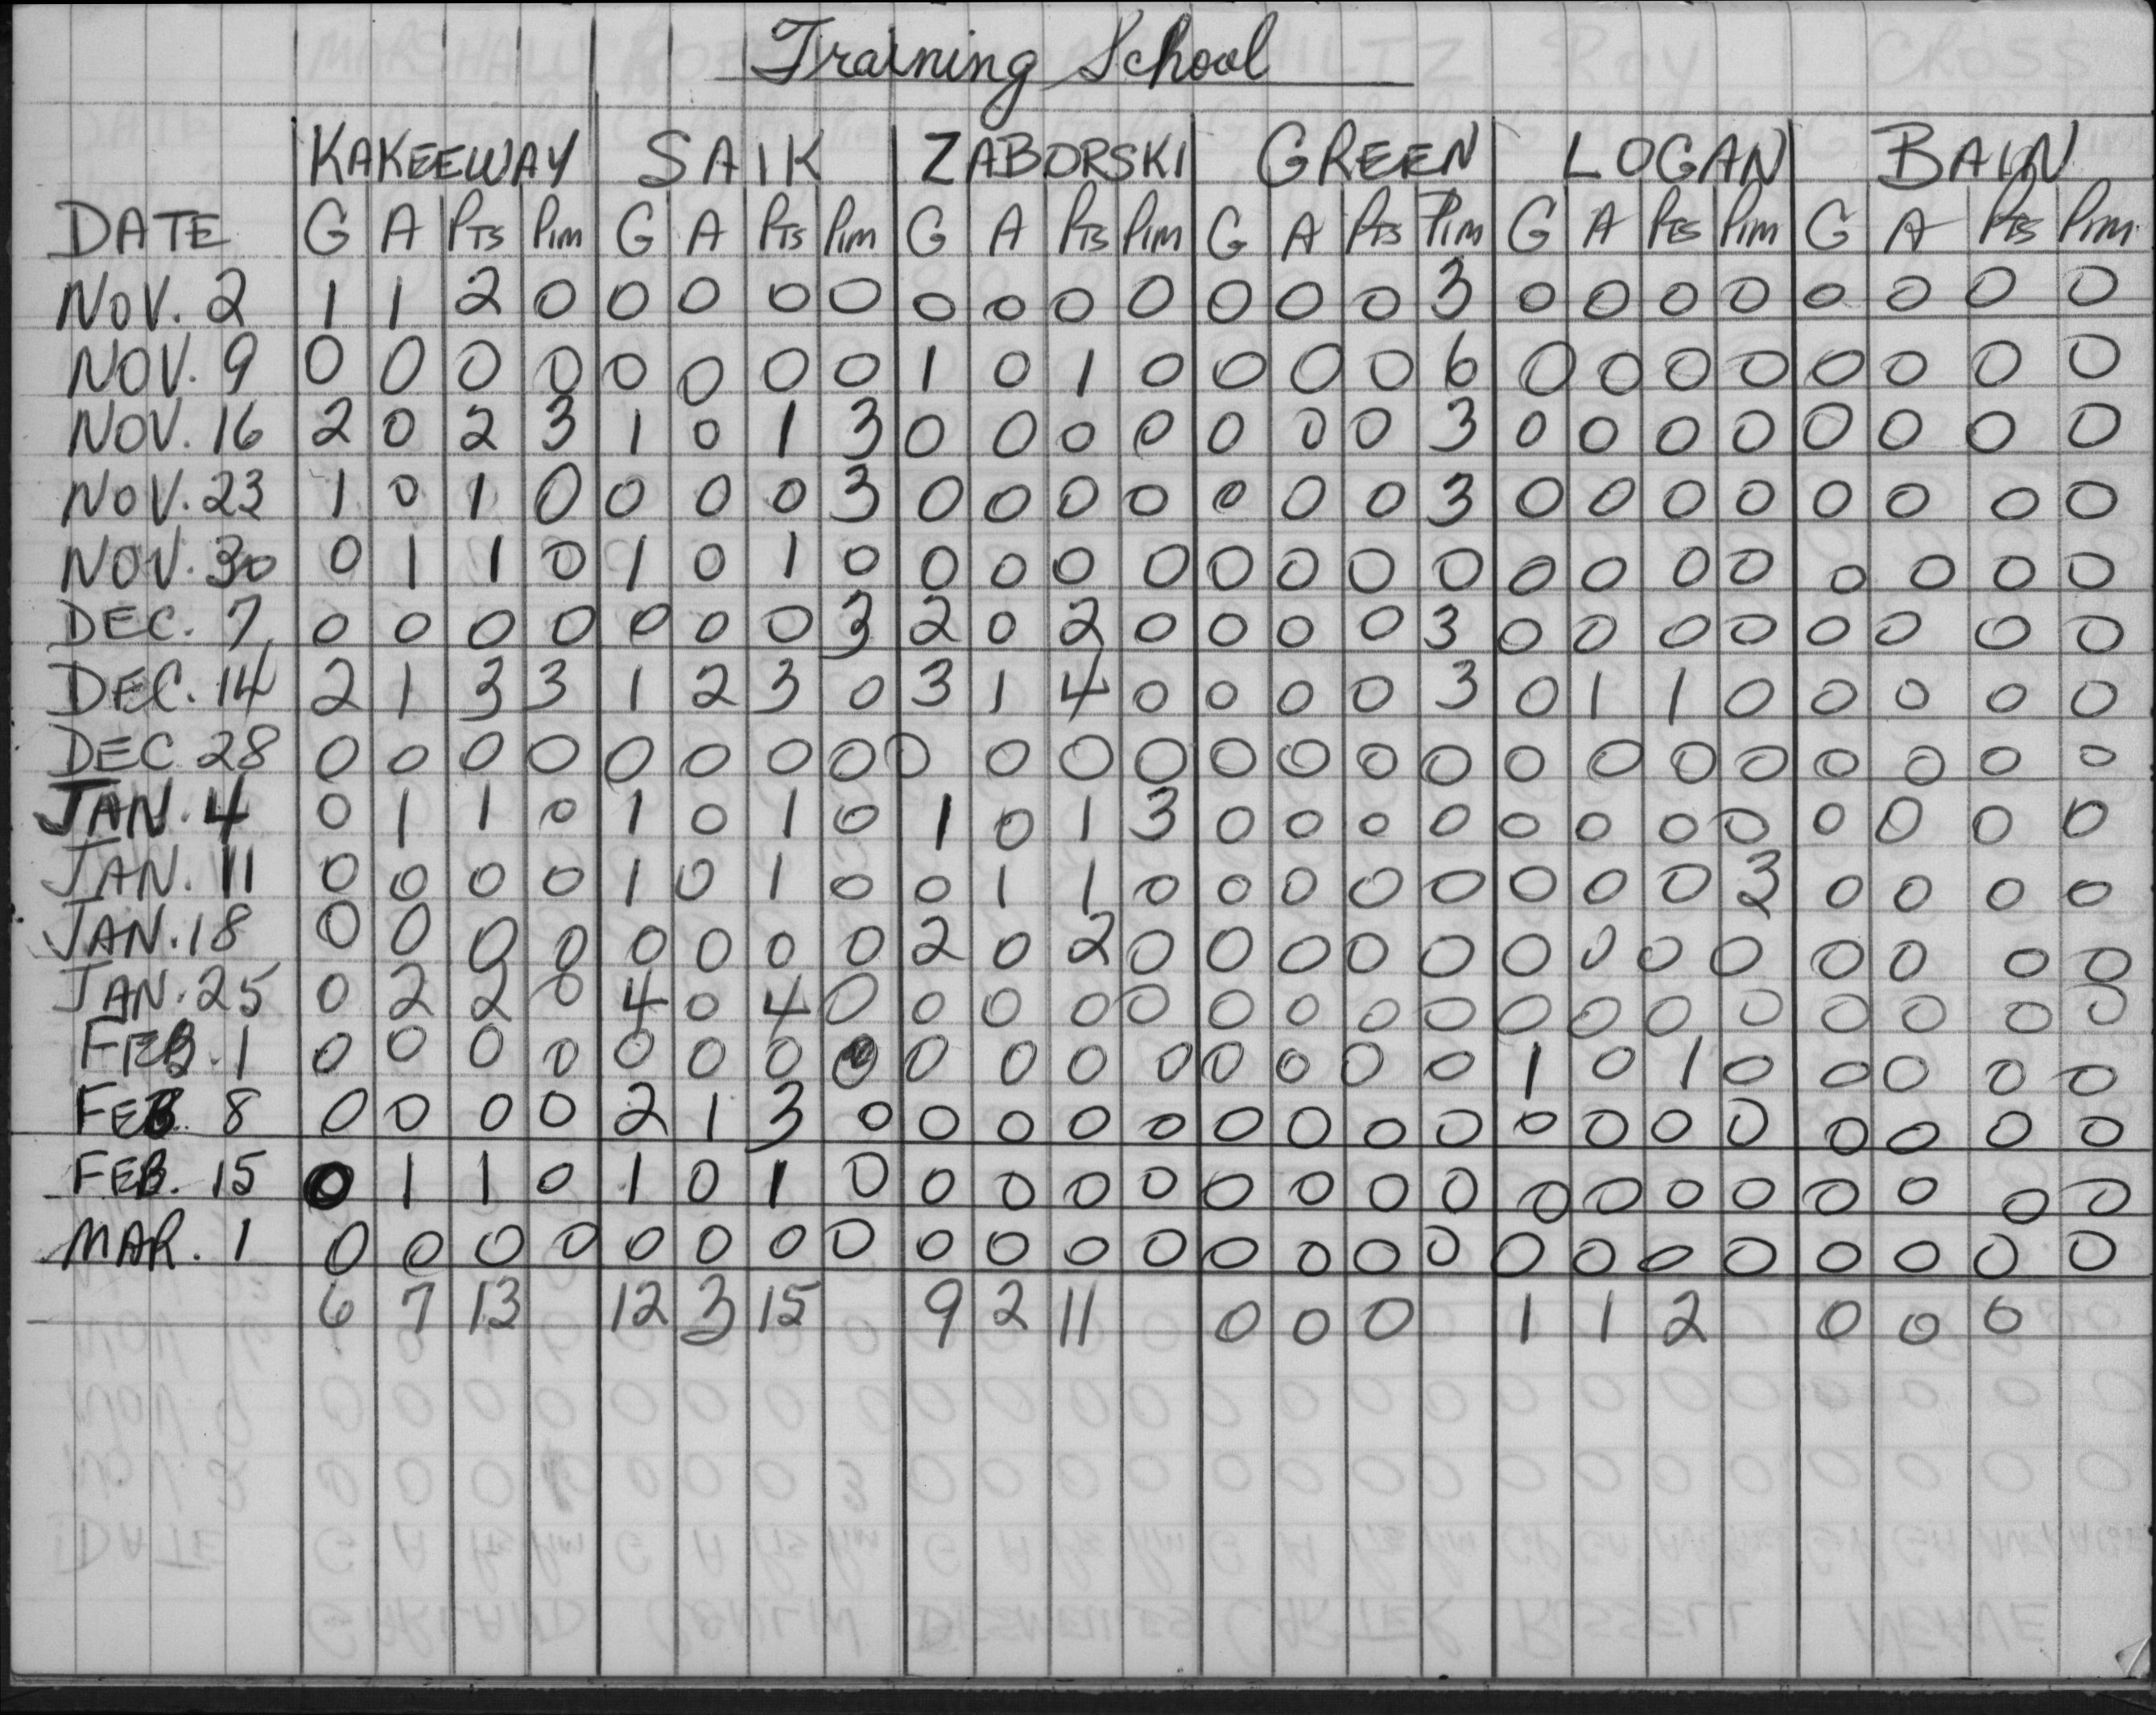 Training School
KAKEEWAY SAIK ZABORSKI GREEN LOGAN BAIN
DATE G A PTS Pim G A PTS Pim G A PTS Pim G A PTS Pim G A PTS Pim G A PTS Pim
NOV. 2 1 1 2 0 0 0 0 0 0 0 0 0 0 0 0 3 0 0 0 0 0 0 0 0
NOV. 9 0 0 0 0 0 0 0 0 1 0 1 0 0 0 0 6 0 0 0 0 0 0 0 0
NOV. 16 2 0 2 3 1 0 1 3 0 0 0 0 0 0 0 3 0 0 0 0 0 0 0 0
NOV. 23 1 0 1 0 0 0 0 3 0 0 0 0 0 0 0 3 0 0 0 0 0 0 0 0
NOV. 30 0 1 1 0 1 0 1 0 0 0 0 0 0 0 0 0 0 0 0 0 0 0 0 0
DEC. 7 0 0 0 0 0 0 0 3 2 0 2 0 0 0 0 3 0 0 0 0 0 0 0 0
DEC. 14 2 1 3 3 1 2 3 0 3 1 4 0 0 0 0 3 0 1 1 0 0 0 0 0
DEC 28 0 0 0 0 0 0 0 0 0 0 0 0 0 0 0 0 0 0 0 0 0 0 0 0
JAN. 4 0 1 1 0 1 0 1 0 1 0 1 3 0 0 0 0 0 0 0 0 0 0 0 0
JAN. 11 0 0 0 0 1 0 1 0 0 1 1 0 0 0 0 0 0 0 0 3 0 0 0 0
JAN. 18 0 0 0 0 0 0 0 0 2 0 2 0 0 0 0 0 0 0 0 0 0 0 0 0
JAN. 25 0 2 2 0 4 0 4 0 0 0 0 0 0 0 0 0 0 0 0 0 0 0 0 0
FEB. 1 0 0 0 0 0 0 0 0 0 0 0 0 0 0 0 0 1 0 1 0 0 0 0 0
FEB. 8 0 0 0 0 2 1 3 0 0 0 0 0 0 0 0 0 0 0 0 0 0 0 0 0
FEB. 15 0 1 1 0 1 0 1 0 0 0 0 0 0 0 0 0 0 0 0 0 0 0 0 0
MAR. 1 0 0 0 0 0 0 0 0 0 0 0 0 0 0 0 0 0 0 0 0 0 0 0 0
6 7 13 12 3 15 9 2 11 0 0 0 1 1 2 0 0 0